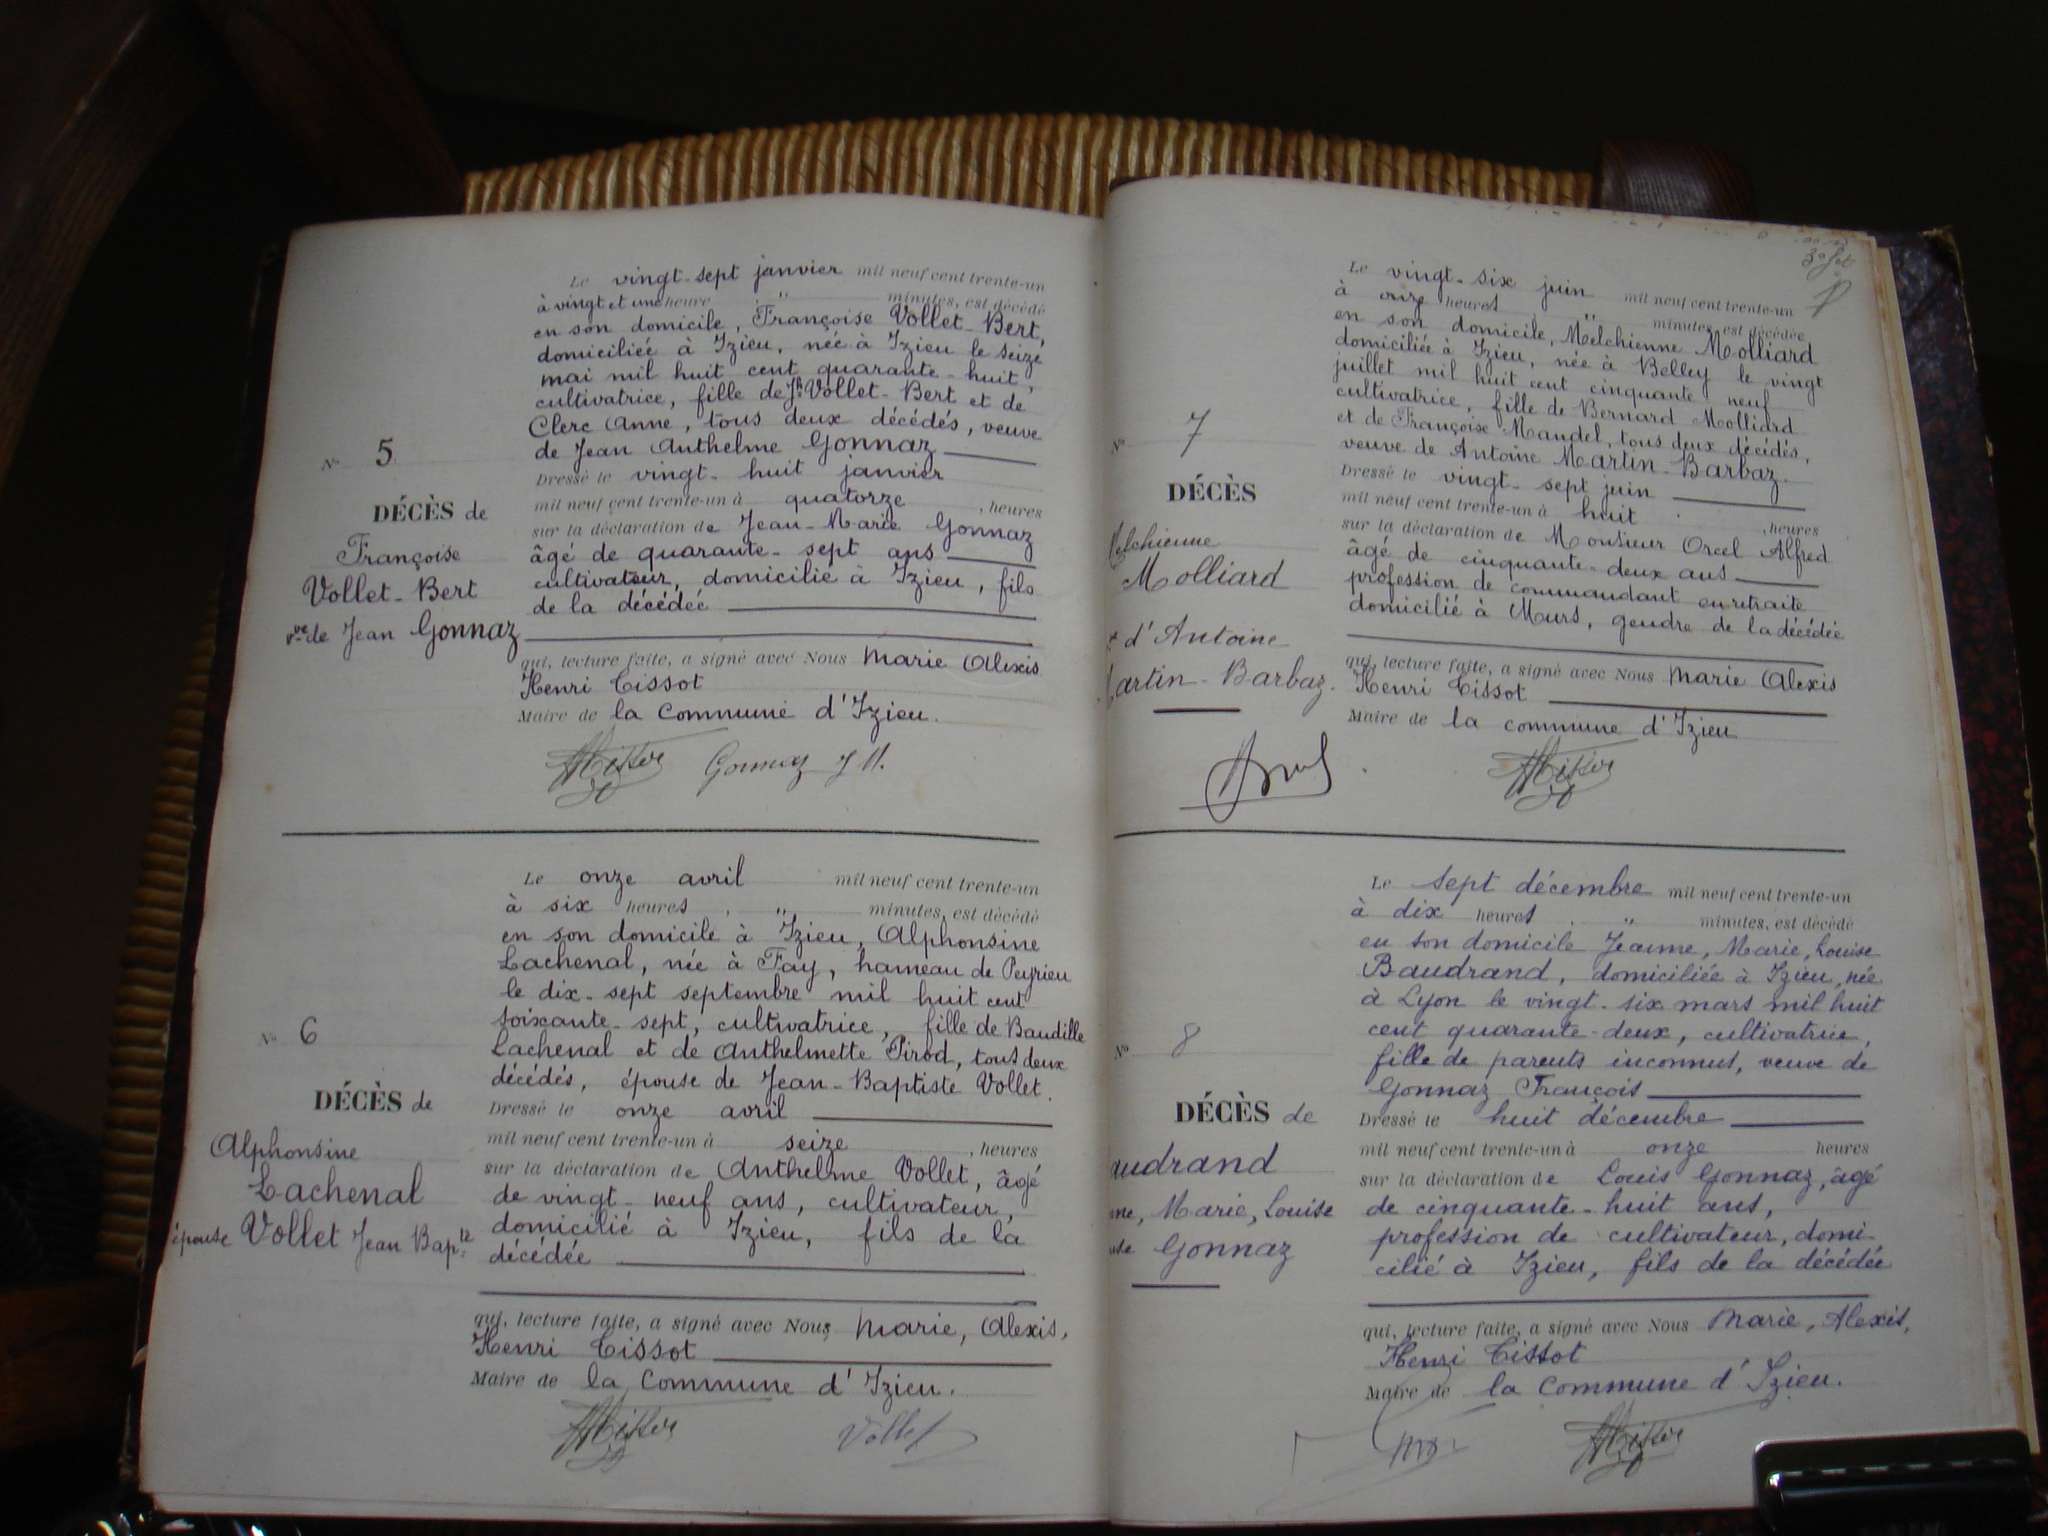 Le vingt-sept janvier mil neuf cent trente-un
à vingt et une heure " minutes, est décédé
en son domicile, Françoise Vollet-Bert,
domiciliée à Izieu, née à Izieu le seize
mai mil huit cent quarante-huit,
cultivatrice, fille de Jh Vollet-Bert et de
Clerc Anne, tous deux décédés, veuve
de Jean Anthelme Gonnaz
N° 5
DÉCÈS de
Françoise
Vollet-Bert
vve de Jean Gonnaz
Dressé le vingt-huit janvier
mil neuf cent trente-un à quatorze, heures
sur la déclaration de Jean-Marie Gonnaz
âgé de quarante-sept ans
cultivateur, domicilié à Izieu, fils
de la décédée
qui, lecture faite, a signé avec Nous Marie Alexis
Henri Tissot
Maire de la Commune d'Izieu.
Gonnaz J M.
Le onze avril mil neuf cent trente-un
à six heures, " minutes, est décédé
en son domicile à Izieu, Alphonsine
Lachenal, née à Fay, hameau de Peyrieu
le dix-sept septembre mil huit cent
soixante-sept, cultivatrice, fille de Baudille
Lachenal et de Anthelmette Pirod, tous deux
décédés, épouse de Jean-Baptiste Vollet.
N° 6
DÉCÈS de
Alphonsine
Lachenal
épouse Vollet Jean Bapte
Dressé le onze avril
mil neuf cent trente-un à seize, heures
sur la déclaration de Anthelme Vollet, âgé
de vingt-neuf ans, cultivateur,
domicilié à Izieu, fils de la
décédée
qui, lecture faite, a signé avec Nous Marie, Alexis,
Henri Tissot
Maire de la Commune d'Izieu.
Vollet
Le vingt-six juin mil neuf cent trente-un
à onze heures " minutes, est décédée
en son domicile, Melchienne Molliard
domiciliée à Izieu, née à Belley le vingt
juillet mil huit cent cinquante neuf
cultivatrice, fille de Bernard Molliard
et de Françoise Mandel, tous deux décédés,
veuve de Antoine Martin-Barbaz.
N° 7
DÉCÈS
Melchienne
Molliard
d'Antoine
Martin-Barbaz.
Dressé le vingt-sept juin
mil neuf cent trente-un à huit, heures
sur la déclaration de Monsieur Orcel Alfred
âgé de cinquante-deux ans
profession de commandant en retraite
domicilié à Murs, gendre de la décédée
qui, lecture faite, a signé avec Nous Marie Alexis
Henri Tissot
Maire de la commune d'Izieu
Le sept décembre mil neuf cent trente-un
à dix heures " minutes, est décédé
en son domicile Jeanne, Marie, Louise
Baudrand, domiciliée à Izieu, née
à Lyon le vingt-six mars mil huit
cent quarante-deux, cultivatrice,
fille de parents inconnus, veuve de
Gonnaz François
N° 8
DÉCÈS de
audrand
ne, Marie, Louise
Gonnaz
Dressé le huit décembre
mil neuf cent trente-un à onze heures
sur la déclaration de Louis Gonnaz, âgé
de cinquante-huit ans,
profession de cultivateur, domi-
cilié à Izieu, fils de la décédée
qui, lecture faite, a signé avec Nous Marie, Alexis,
Henri Tissot
Maire de la Commune d'Izieu.